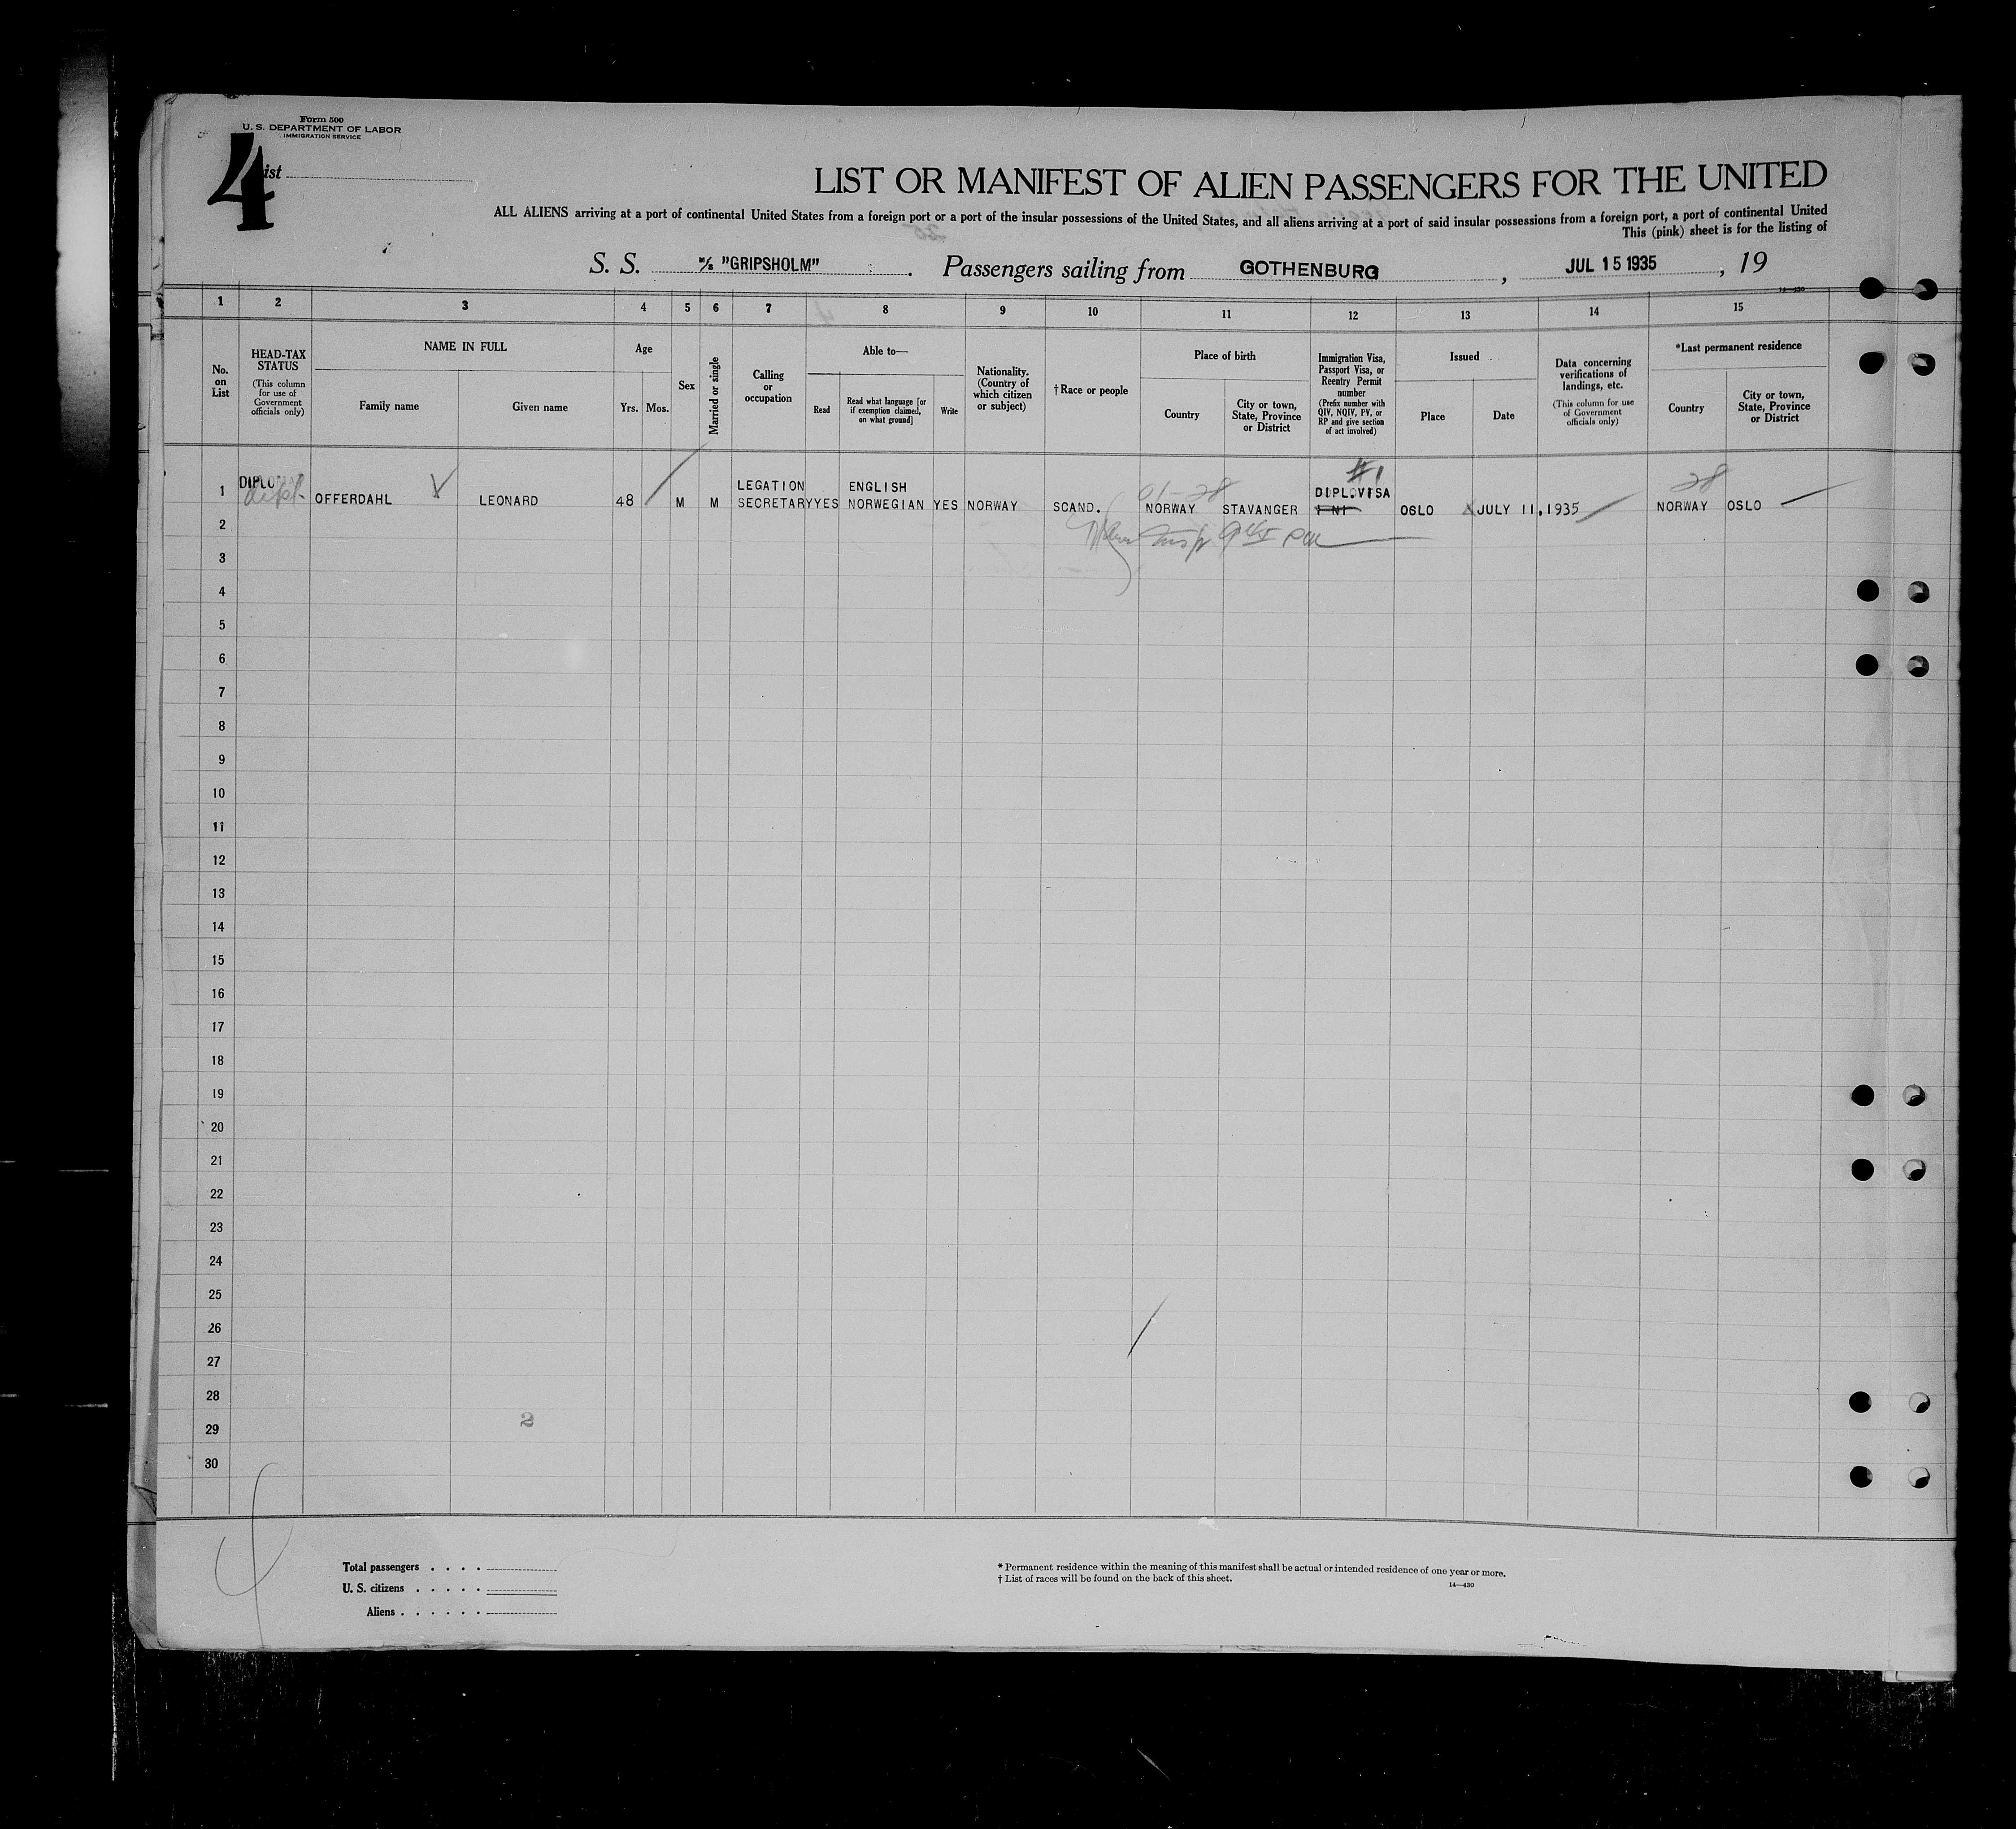 Form 500
U. S. DEPARTMENT OF LABOR
IMMIGRATION SERVICE
4
ist
LIST OR MANIFEST OF ALIEN PASSENGERS FOR THE UNITED
ALL ALIENS arriving at a port of continental United States from a foreign port or a port of the insular possessions of the United States, and all aliens arriving at a port of said insular possessions from a foreign port, a port of continental United
This (pink) sheet is for the listing of
S. S. M/S "GRIPSHOLM". Passengers sailing from GOTHENBURG, JUL 15 1935, 19
14—430
1 2 3 4 5 6 7 8 9 10 11 12 13 14 15
No. on List
HEAD-TAX STATUS
(This column for use of Government officials only)
NAME IN FULL
Family name
Given name
Age
Yrs.
Mos.
Sex
Married or single
Calling or occupation
Able to—
Read
Read what language [or if exemption claimed, on what ground]
Write
Nationality. (Country of which citizen or subject)
† Race or people
Place of birth
Country
City or town, State, Province or District
Immigration Visa, Passport Visa, or Reentry Permit number
(Prefix number with QIV, NQIV, PV, or RP and give section of act involved)
Issued
Place
Date
Data concerning verifications of landings, etc.
(This column for use of Government officials only)
*Last permanent residence
Country
City or town, State, Province or District
#1
01-28
28
DIPLO
dipl.
LEGATION
ENGLISH
DIPL.VISA
1 OFFERDAHL LEONARD 48 M M SECRETARY YES NORWEGIAN YES NORWAY SCAND. NORWAY STAVANGER OSLO JULY 11,1935 NORWAY OSLO
2
3
4
5
6
7
8
9
10
11
12
13
14
15
16
17
18
19
20
21
22
23
24
25
26
27
28
2
29
30
Total passengers
U. S. citizens
Aliens
* Permanent residence within the meaning of this manifest shall be actual or intended residence of one year or more.
† List of races will be found on the back of this sheet.
14—430